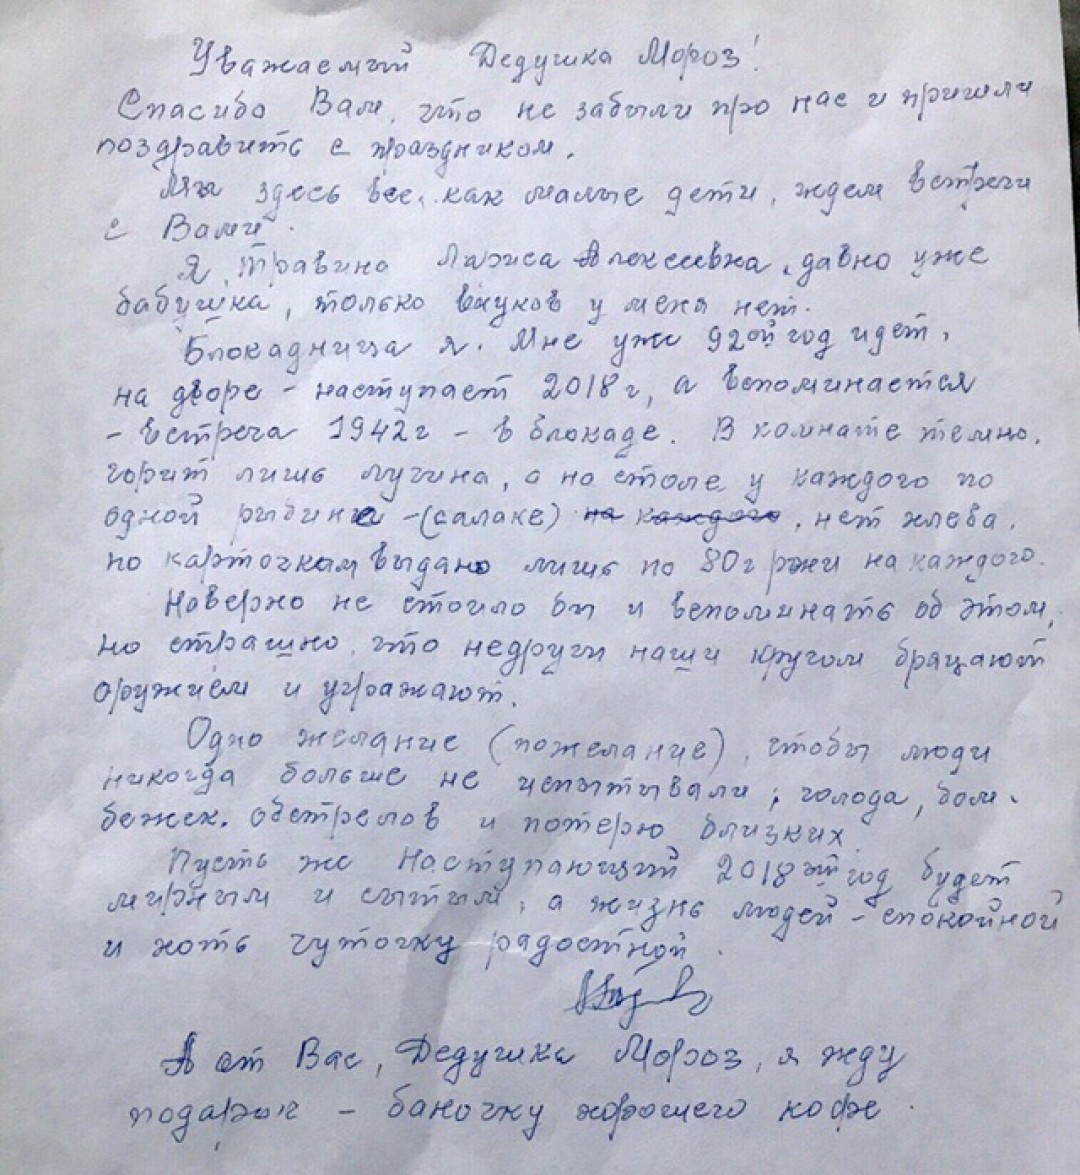 Уважаемый Дедушка Мороз!
Спасибо Вам, что не забыли про нас и пришли
поздравить с праздником.
Мы здесь все, как малые дети, ждем встречи
с Вами.
Я, Травина Лариса Алексеевна, давно уже
бабушка, только внуков у меня нет.
Блокадница я. Мне уже 92ой год идет,
на дворе - наступает 2018 г, а вспоминается
- встреча 1942 г - в блокаде. В комнате темно,
горит лишь лучина, а на столе у каждого по
одной рыбине - (салаке) на каждого, нет хлеба,
по карточкам выдано лишь по 80 г ржи на каждого.
Наверно не стоило бы и вспоминать об этом,
но страшно, что недруги наши кругом бряцают
оружием и угражают.
Одно желание (пожелание), чтобы люди
никогда больше не испытывали, голода, бом-
бежек, обстрелов и потерю близких.
Пусть же Наступающий 2018ый год будет
мирным и сытым, а жизнь людей - спокойной
и хоть чуточку радостной.
А от Вас, Дедушка Мороз, я жду
подарок - баночку хорошего кофе.